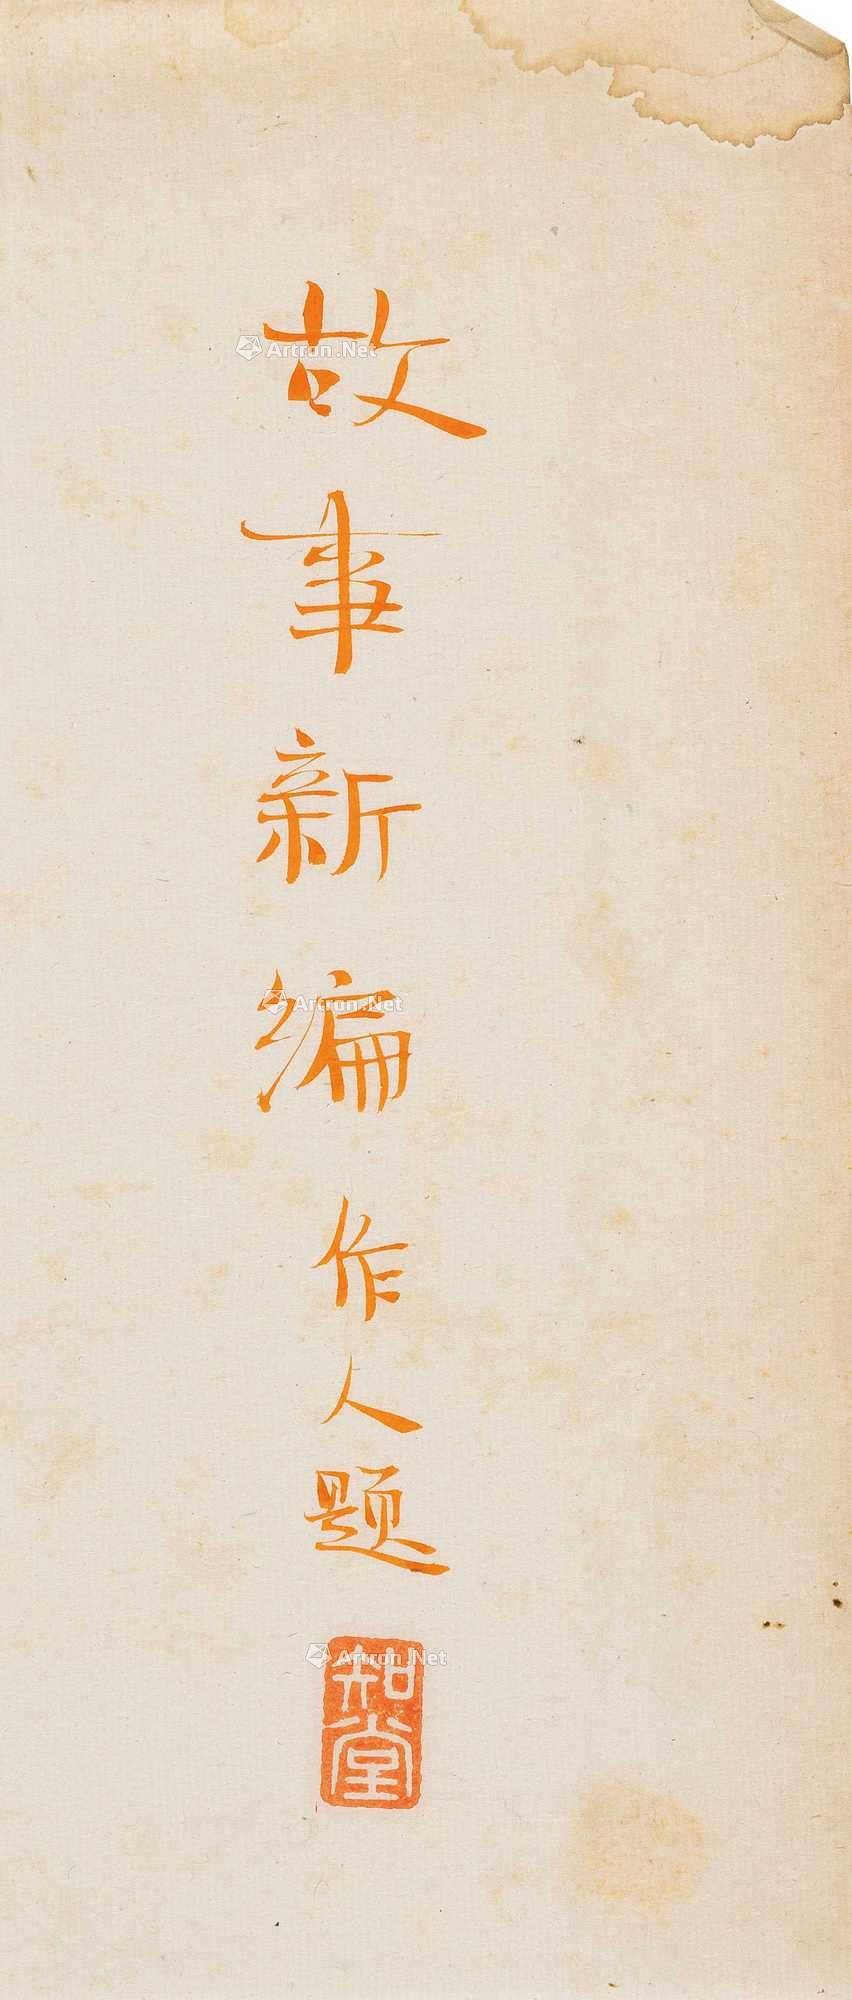 故事新编 作人题
知堂
Artron.Net
Artron.Net
Artron.Net